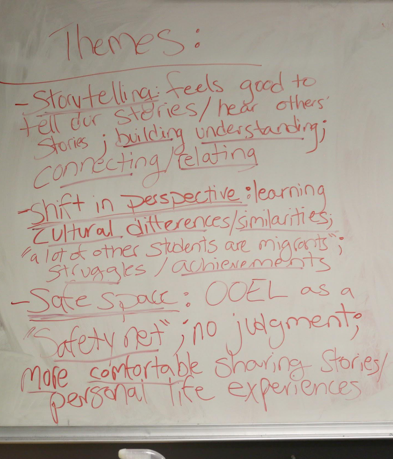 Themes:
- Storytelling: feels good to
tell our stories/hear others'
stories; building understanding;
connecting/relating
- Shift in perspective: learning
cultural differences/similarities;
"a lot of other students are migrants";
struggles/achievements
- Safe space: OOEL as a
"Safety net"; no judgment;
more comfortable sharing stories/
personal life experiences